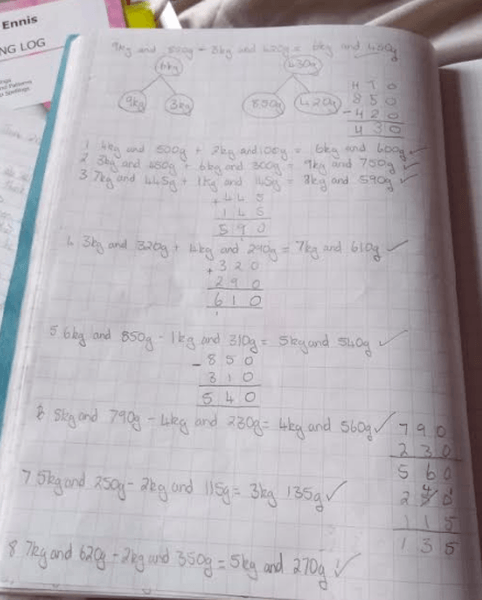 Ennis
NG LOG
9kg and 850g - 3kg and 420g = 6kg and 430g
6kg 430g
9kg 3kg 850g 420g
H T O
8 5 0
- 4 2 0
4 3 0
1 4kg and 500g + 2kg and 100g = 6kg and 600g ✓
2 3kg and 450g + 6kg and 300g = 9kg and 750g ✓
3 7kg and 445g + 1kg and 145g = 8kg and 590g ✓
+ 4 4 5
1 4 5
5 9 0
1
4. 3kg and 320g + 4kg and 290g = 7kg and 610g ✓
+ 3 2 0
2 9 0
6 1 0
1
5 6kg and 850g - 1kg and 310g = 5kg and 540g ✓
- 8 5 0
3 1 0
5 4 0
5kg and 790g - 4kg and 230g = 4kg and 560g ✓
7 9 0
2 3 0
5 6 0
7 5kg and 250g - 2kg and 115g = 3kg 135g ✓
2 5 0
1 1 5
1 3 5
8 7kg and 620g - 2kg and 350g = 5kg and 270g ✓